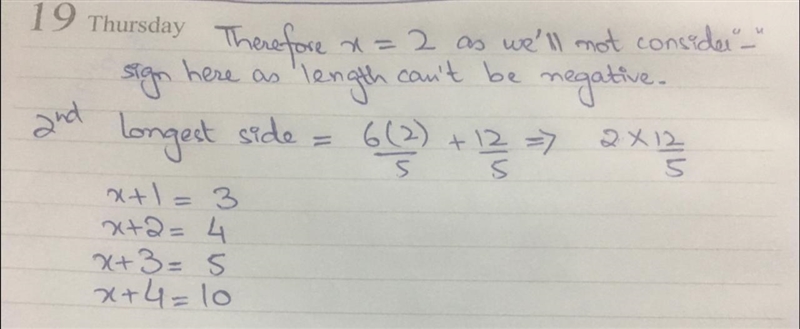 19 Thursday
Therefore x = 2 as we'll not consider "-"
sign here as length can't be negative.
2nd longest side = 6(2)/5 + 12/5 ⇒ 2 × 12/5
x+1 = 3
x+2 = 4
x+3 = 5
x+4 = 10